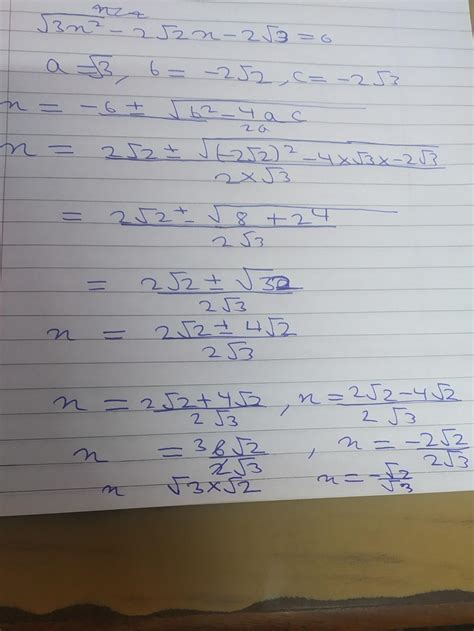 √3x² - 2√2x - 2√3 = 0
a = √3, b = -2√2, c = -2√3
x = -b ± √b² - 4ac / 2a
x = 2√2 ± √(-2√2)² - 4×√3×-2√3 / 2×√3
= 2√2 ± √8 + 24 / 2√3
= 2√2 ± √32 / 2√3
x = 2√2 ± 4√2 / 2√3
x = 2√2 + 4√2 / 2√3 , x = 2√2 - 4√2 / 2√3
x = ³6√2 / 2√3 , x = -2√2 / 2√3
x √3×√2 x = -√2 / √3